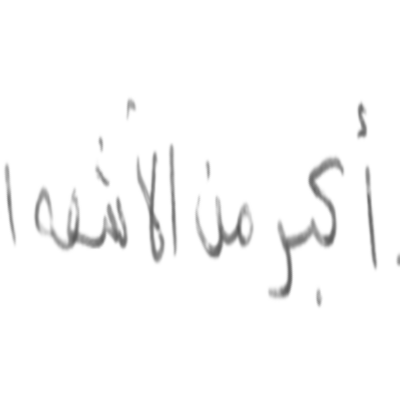 أكبر من الأشعه ا